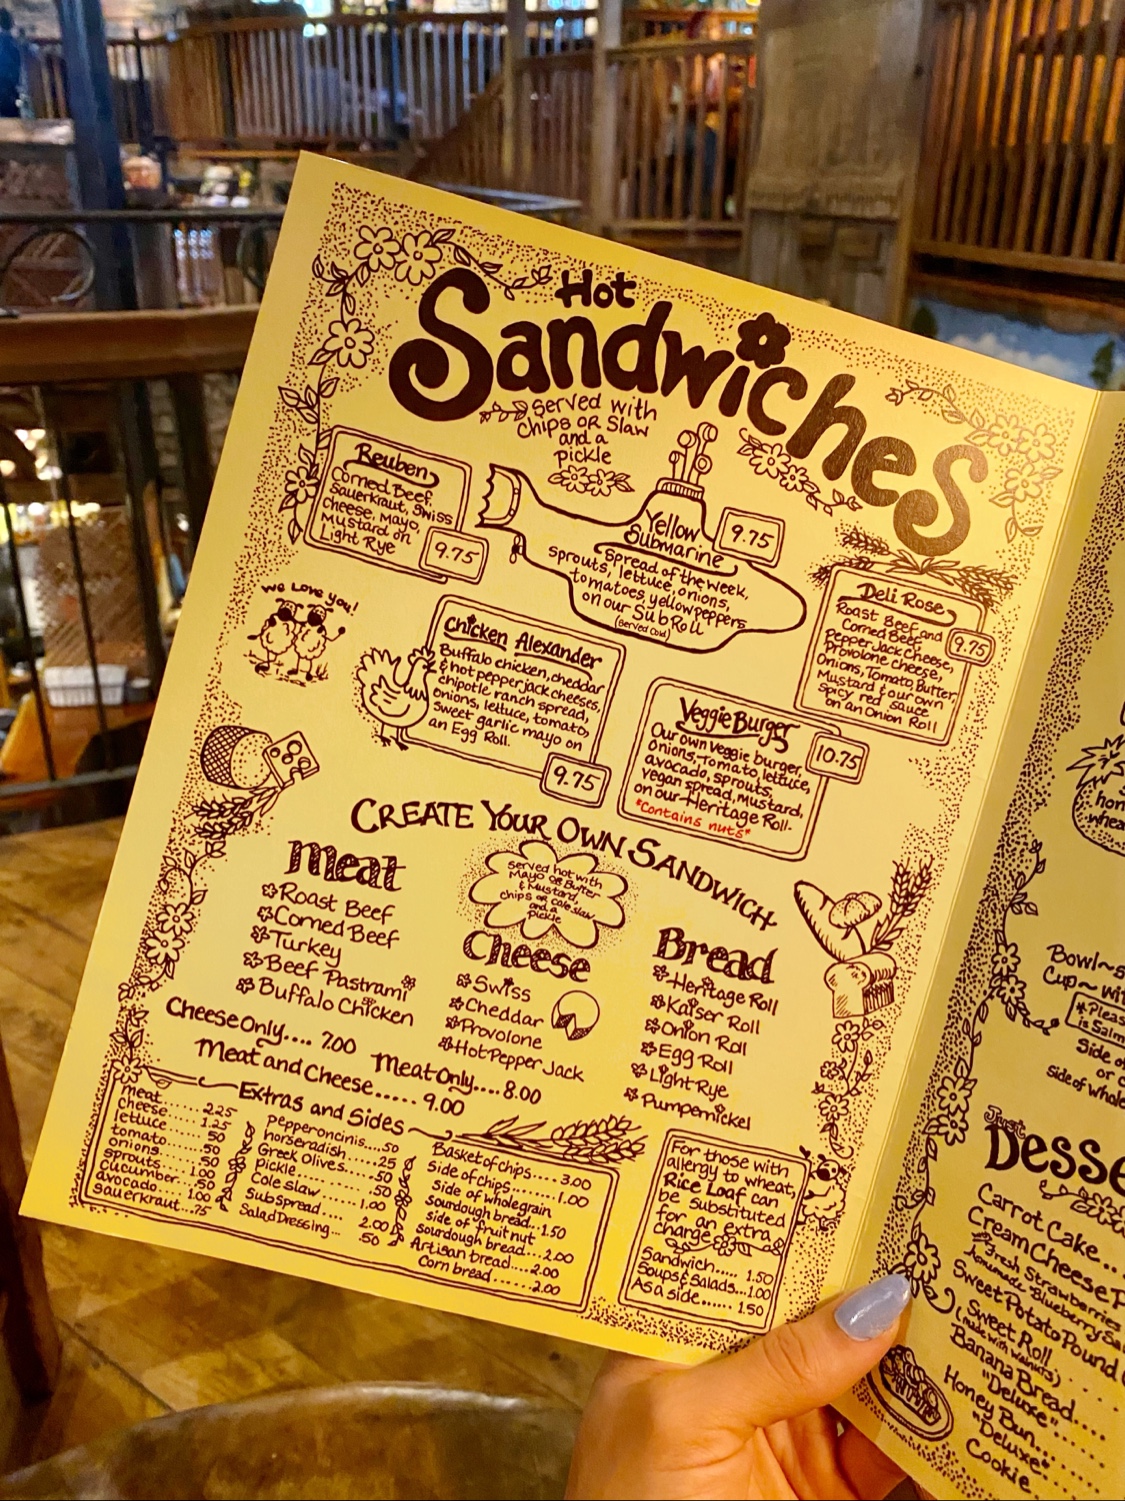 Hot
Sandwiches
served with
chips or slaw
and a
pickle
Reuben
Corned Beef,
Sauerkraut, Swiss
Cheese, Mayo,
Mustard on
Light Rye
9.75
Yellow
Submarine
9.75
Spread of the week,
sprouts, lettuce, onions,
tomatoes, yellow peppers
on our Sub Roll
(Served Cold)
Deli Rose
Roast Beef and
Corned Beef,
Pepper Jack Cheese,
Provolone cheese,
Onions, Tomato, Butter,
Mustard & our own
spicy red sauce
on an Onion Roll
9.75
We Love you!
Chicken Alexander
Buffalo chicken, cheddar
& hot pepper jack cheeses,
chipotle ranch spread,
onions, lettuce, tomato,
Sweet garlic mayo on
an Egg Roll.
9.75
Veggie Burger
Our own Veggie burger,
Onions, Tomato, lettuce,
avocado, sprouts,
vegan spread, mustard,
on our Heritage Roll.
*Contains nuts*
10.75
CREATE YOUR OWN SANDWICH
served hot with
Mayo or Butter
& Mustard,
chips or cole slaw
and a
pickle
Meat
Roast Beef
Corned Beef
Turkey
Beef Pastrami
Buffalo Chicken
Cheese
Swiss
Cheddar
Provolone
Hot Pepper Jack
Bread
Heritage Roll
Kaiser Roll
Onion Roll
Egg Roll
Light Rye
Pumpernickel
Cheese Only.... 7.00
Meat Only.... 8.00
Meat and Cheese...... 9.00
Extras and Sides
meat...... 2.25
cheese...... 1.25
lettuce...... .50
tomato...... .50
onions...... .50
sprouts.... 1.00
cucumber.. .50
avocado.... 1.00
sauerkraut... .75
Pepperoncinis.... .50
horseradish.... .25
Greek Olives.... .50
Pickle.......... .50
Cole slaw.... 1.00
Sub spread.... 2.00
Salad Dressing... .50
Basket of chips.... 3.00
Side of chips........ 1.00
Side of whole grain
sourdough bread... 1.50
side of fruit nut
sourdough bread... 2.00
Artisan bread.... 2.00
Corn bread...... 2.00
For those with
allergy to wheat,
Rice Loaf can
be substituted
for an extra
change
Sandwich..... 1.50
Soups & Salads... 1.00
As a side...... 1.50
Bowl~s
Cup~ wit
*Pleas
is Salm
Side of
or c
side of whole
Just
Desse
Carrot Cake...
Cream Cheese P
Fresh Strawberries
homemade Blueberry Sau
Sweet Potato Pound
Sweet Roll
(made with walnuts)
Banana Bread....
"Deluxe"
Honey Bun....
"Deluxe"
Cookie